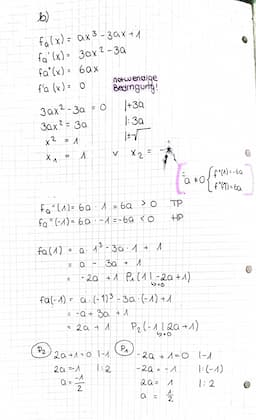 b)
fa(x) = ax³ - 3ax + 1
fa'(x) = 3ax² - 3a
fa"(x) = 6ax
f'a(x) = 0 notwendige Bedingung!
3ax² - 3a = 0 |+3a
3ax² = 3a |:3a
x² = 1 |±√
x₁ = 1 v x₂ =
a ≠ 0 { f"(-1) = -6a
f"(1) = 6a
fa"(1) = 6a · 1 = 6a > 0 TP
fa"(-1) = 6a · -1 = -6a < 0 HP
fa(1) = a · 1³ - 3a · 1 + 1
= a - 3a + 1
= -2a + 1 P₁(1 | -2a+1)
fa(-1) = a · (-1)³ - 3a · (-1) + 1
= -a + 3a + 1
= 2a + 1 P₂(-1 | 2a+1)
P₂ 2a + 1 = 0 |-1 P₁ -2a + 1 = 0 |-1
2a = -1 |:2 -2a = -1 |:(-1)
a = -1/2 2a = 1 |:2
a = 1/2